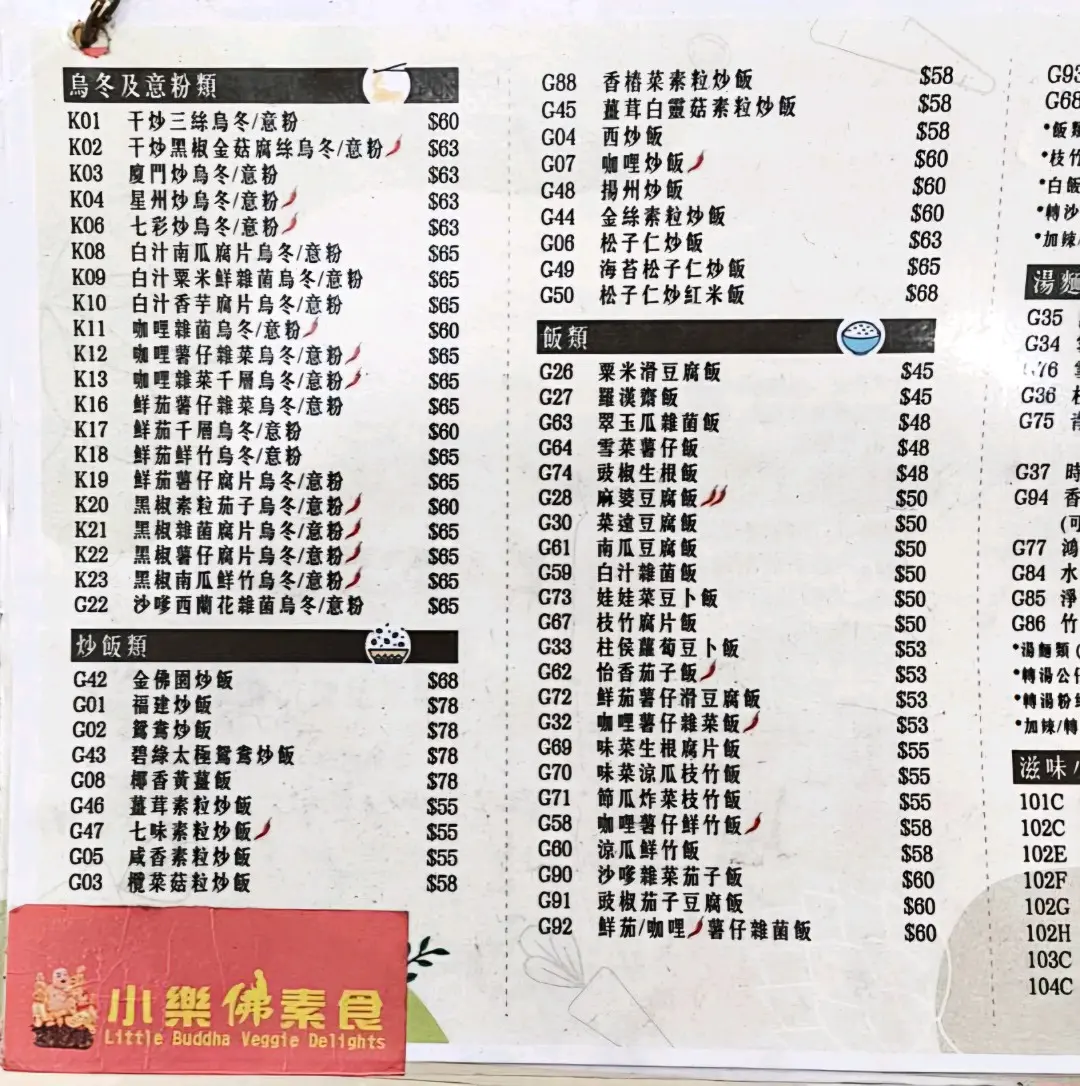 烏冬及意粉類
K01 干炒三絲烏冬/意粉 $60
K02 干炒黑椒金菇腐絲烏冬/意粉 $63
K03 廈門炒烏冬/意粉 $63
K04 星州炒烏冬/意粉 $63
K06 七彩炒烏冬/意粉 $63
K08 白汁南瓜腐片烏冬/意粉 $65
K09 白汁粟米鮮雜菌烏冬/意粉 $65
K10 白汁香芋腐片烏冬/意粉 $65
K11 咖哩雜菌烏冬/意粉 $60
K12 咖哩薯仔雜菜烏冬/意粉 $65
K13 咖哩雜菜千層烏冬/意粉 $65
K16 鮮茄薯仔雜菜烏冬/意粉 $65
K17 鮮茄千層烏冬/意粉 $60
K18 鮮茄鮮竹烏冬/意粉 $65
K19 鮮茄薯仔腐片烏冬/意粉 $65
K20 黑椒素粒茄子烏冬/意粉 $60
K21 黑椒雜菌腐片烏冬/意粉 $65
K22 黑椒薯仔腐片烏冬/意粉 $65
K23 黑椒南瓜鮮竹烏冬/意粉 $65
G22 沙嗲西蘭花雜菌烏冬/意粉 $65
炒飯類
G42 金佛園炒飯 $68
G01 福建炒飯 $78
G02 鴛鴦炒飯 $78
G43 碧綠太極鴛鴦炒飯 $78
G08 椰香黃薑飯 $78
G46 薑茸素粒炒飯 $55
G47 七味素粒炒飯 $55
G05 咸香素粒炒飯 $55
G03 欖菜菇粒炒飯 $58
小樂佛素食
Little Buddha Veggie Delights
G88 香椿菜素粒炒飯 $58
G45 薑茸白靈菇素粒炒飯 $58
G04 西炒飯 $58
G07 咖哩炒飯 $60
G48 揚州炒飯 $60
G44 金絲素粒炒飯 $60
G06 松子仁炒飯 $63
G49 海苔松子仁炒飯 $65
G50 松子仁炒紅米飯 $68
飯類
G26 粟米滑豆腐飯 $45
G27 羅漢齋飯 $45
G63 翠玉瓜雜菌飯 $48
G64 雪菜薯仔飯 $48
G74 豉椒生根飯 $48
G28 麻婆豆腐飯 $50
G30 菜遠豆腐飯 $50
G61 南瓜豆腐飯 $50
G59 白汁雜菌飯 $50
G73 娃娃菜豆卜飯 $50
G67 枝竹腐片飯 $50
G33 柱侯蘿蔔豆卜飯 $53
G62 怡香茄子飯 $53
G72 鮮茄薯仔滑豆腐飯 $53
G32 咖哩薯仔雜菜飯 $53
G69 味菜生根腐片飯 $55
G70 味菜涼瓜枝竹飯 $55
G71 節瓜炸菜枝竹飯 $55
G58 咖哩薯仔鮮竹飯 $58
G60 涼瓜鮮竹飯 $58
G90 沙嗲雜菜茄子飯 $60
G91 豉椒茄子豆腐飯 $60
G92 鮮茄/咖哩薯仔雜菌飯 $60
G93
G68
*飯類
*枝竹
*白飯
*轉沙
*加辣/
湯麵
G35
G34
G76
G36
G75
G37 時
G94 香
(可
G77 鴻
G84 水
G85 淨
G86 竹
*湯麵類(
*轉湯公仔
*轉湯粉
*加辣/轉
滋味小
101C
102C
102E
102F
102G
102H
103C
104C